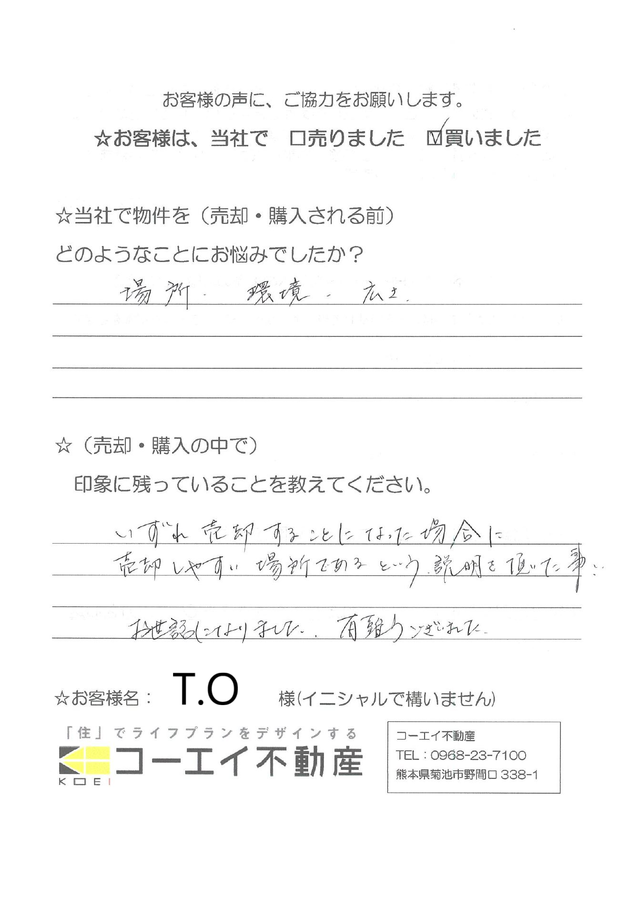 お客様の声に、ご協力をお願いします。
☆お客様は、当社で　□売りました　☑買いました
☆当社で物件を（売却・購入される前）
どのようなことにお悩みでしたか？
場所．環境．広さ．
☆（売却・購入の中で）
印象に残っていることを教えてください。
いずれ売却することになった場合に
売却しやすい場所であるという説明を頂いた事．
お世話になりました．有難うございました．
☆お客様名： T.O 様(イニシャルで構いません)
「住」でライフプランをデザインする
コーエイ不動産
KOEI
コーエイ不動産
TEL：0968-23-7100
熊本県菊池市野間口338-1